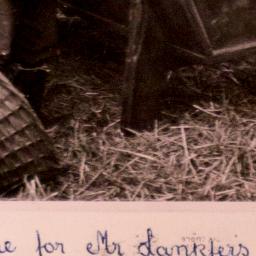 e for Mr Lankfers